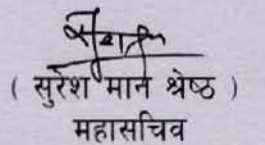 ( सुरेश मान श्रेष्ठ )
महासचिव